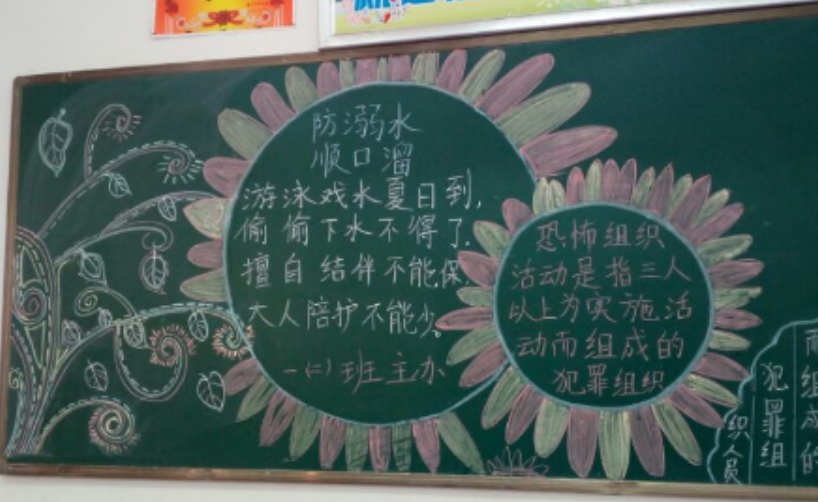 防溺水
顺口溜
游泳戏水夏日到,
偷偷下水不得了.
擅自结伴不能保.
大人陪护不能少。
一(二)班主办
恐怖组织
活动是指三人
以上为实施活
动而组成的
犯罪组织
组成的
犯罪组
织人员